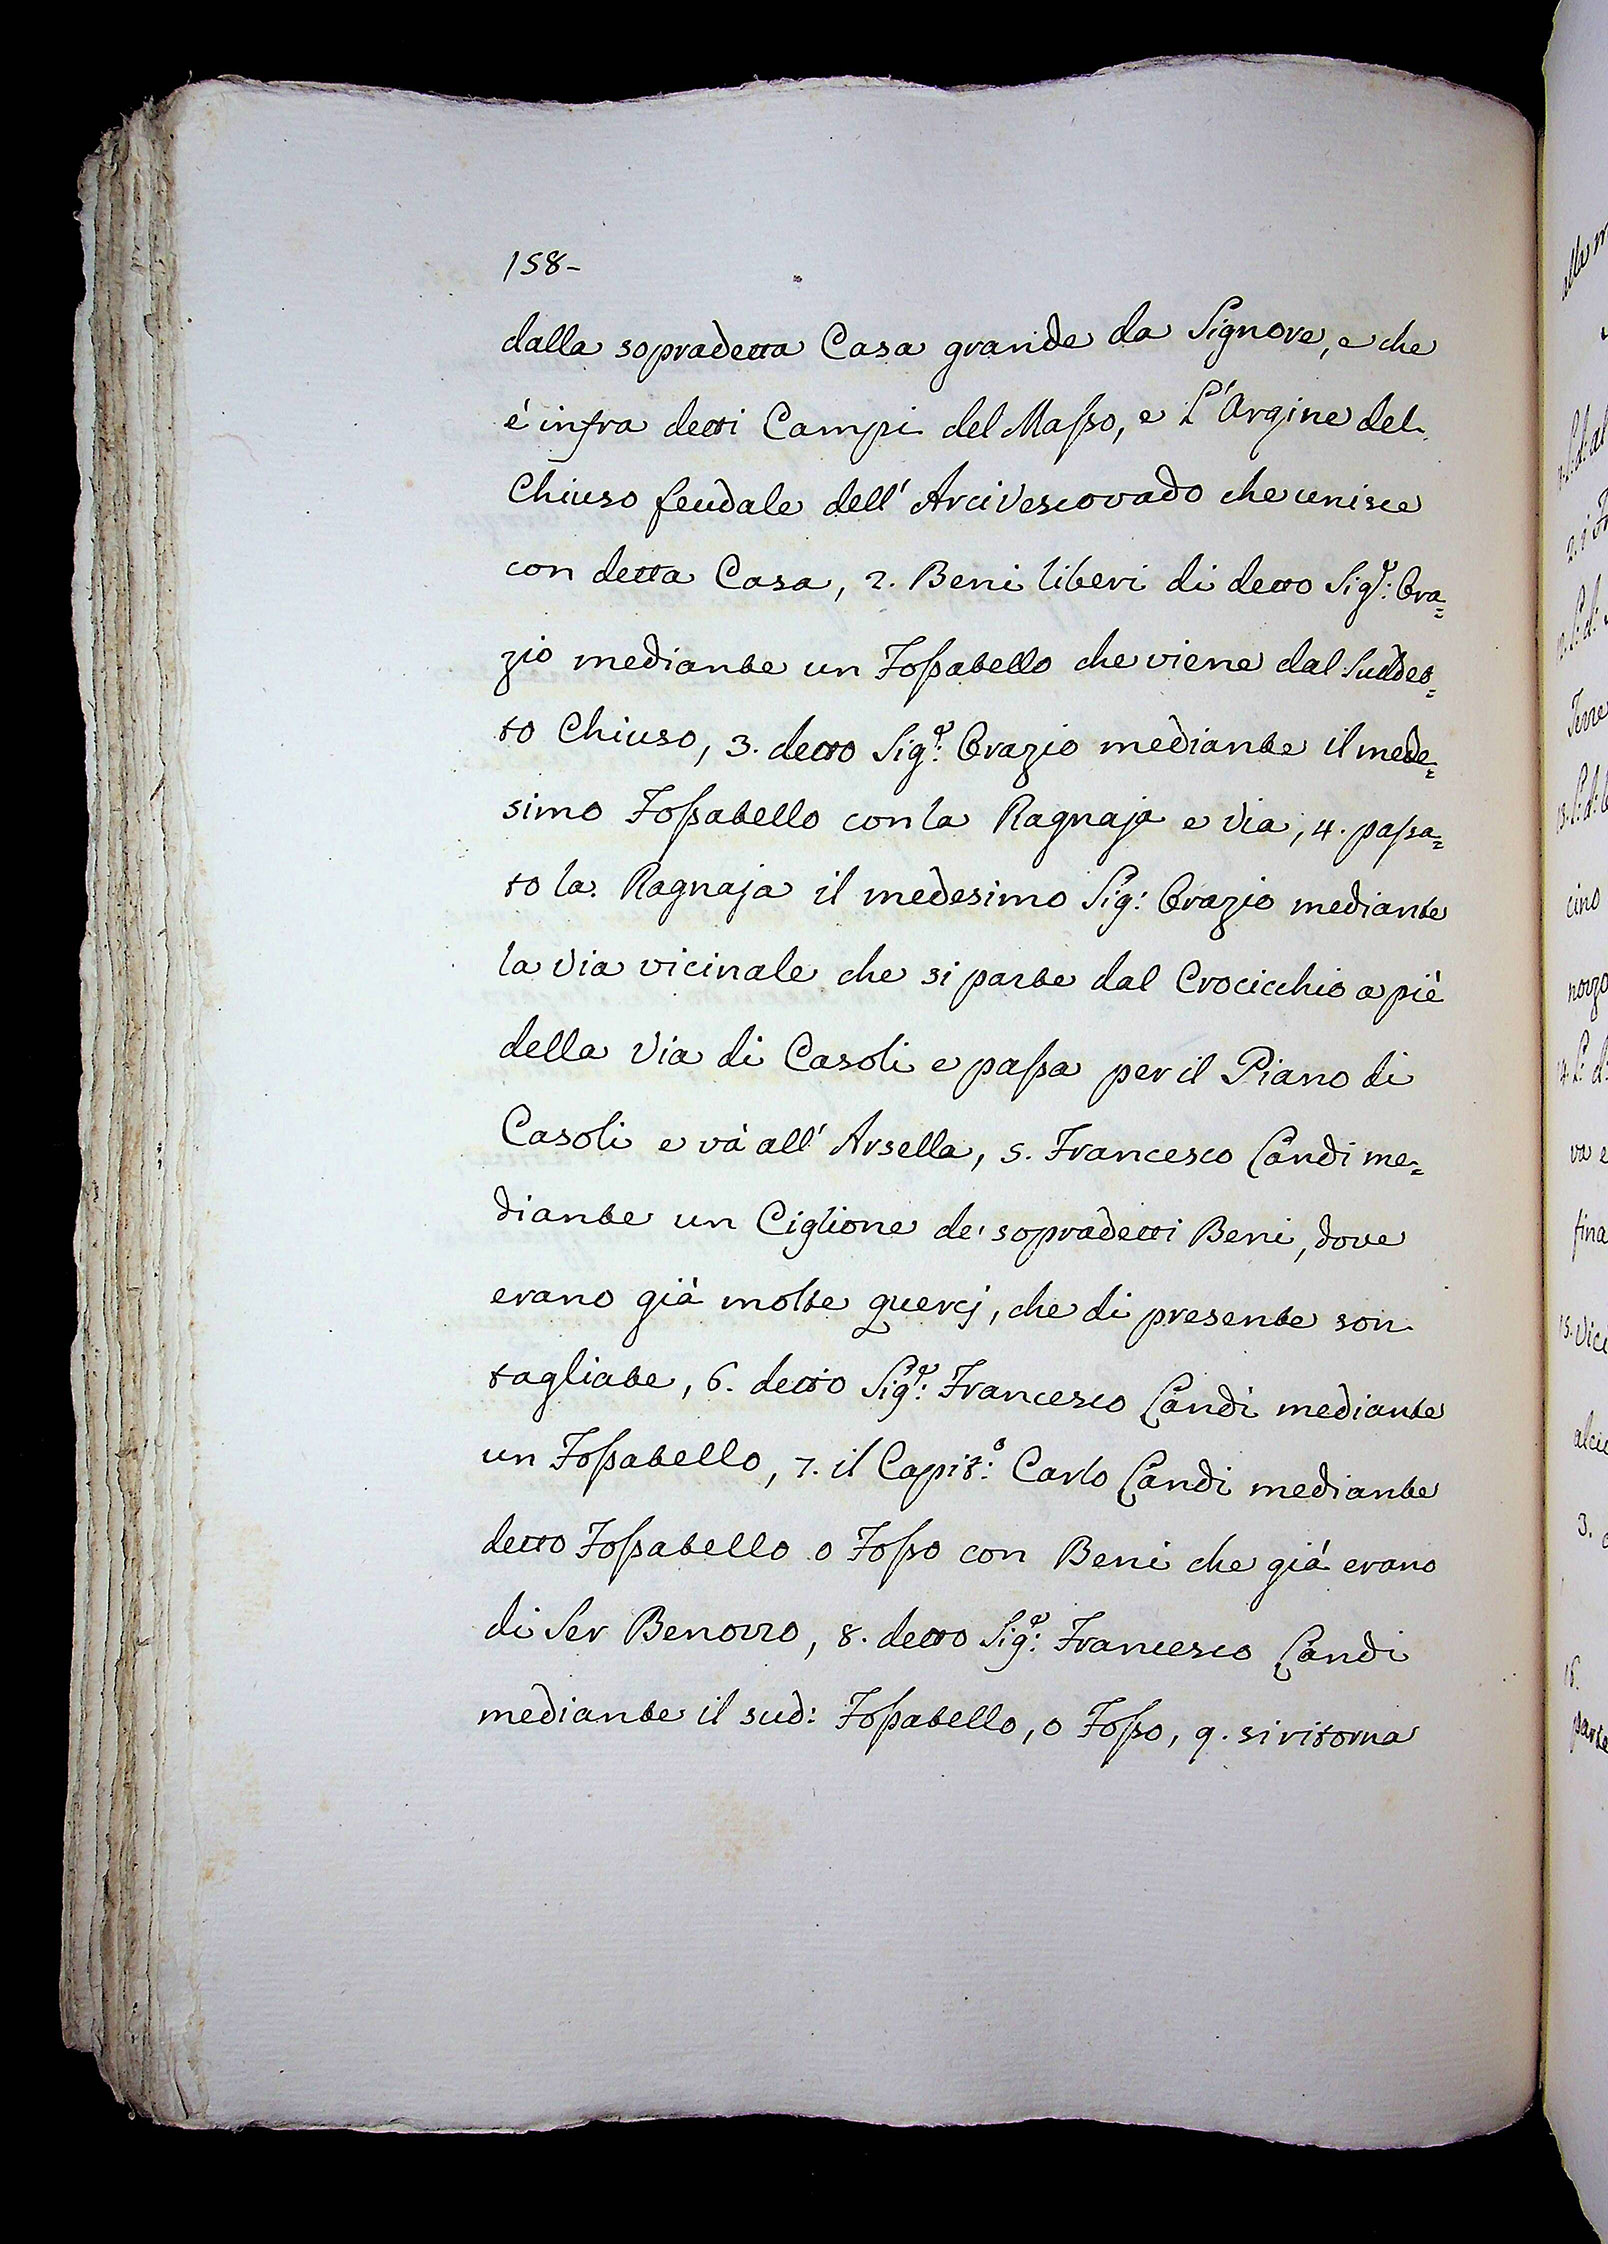 158-
dalla sopradetta Casa grande da Signore, e che
é infra detti Campi del Masso, e L'Argine del
Chiuso feudale dell' Arcivescovado che unisce
con detta Casa, 2. Beni liberi di detto Sig.r: Ora=
zio mediante un Fossatello che viene dal Suddet=
to Chiuso, 3. detto Sig.r: Orazio mediante il mede=
simo Fossatello con la Ragnaja e Via, 4. passa=
to la Ragnaja il medesimo Sig: Orazio mediante
la Via vicinale che si parte dal Crocicchio a piè
della Via di Casoli e passa per il Piano di
Casoli e và all' Arsella, 5. Francesco Landi me=
diante un Ciglione de' sopradetti Beni, dove
erano già molte quercj, che di presente son
tagliate, 6. detto Sig.r: Francesco Landi mediante
un Fossatello, 7. il Capit.o: Carlo Landi mediante
detto Fossatello o Fosso con Beni che già erano
di Ser Benozzo, 8. detto Sig.r: Francesco Landi
mediante il sud: Fossatello, o Fosso, 9. si ritorna